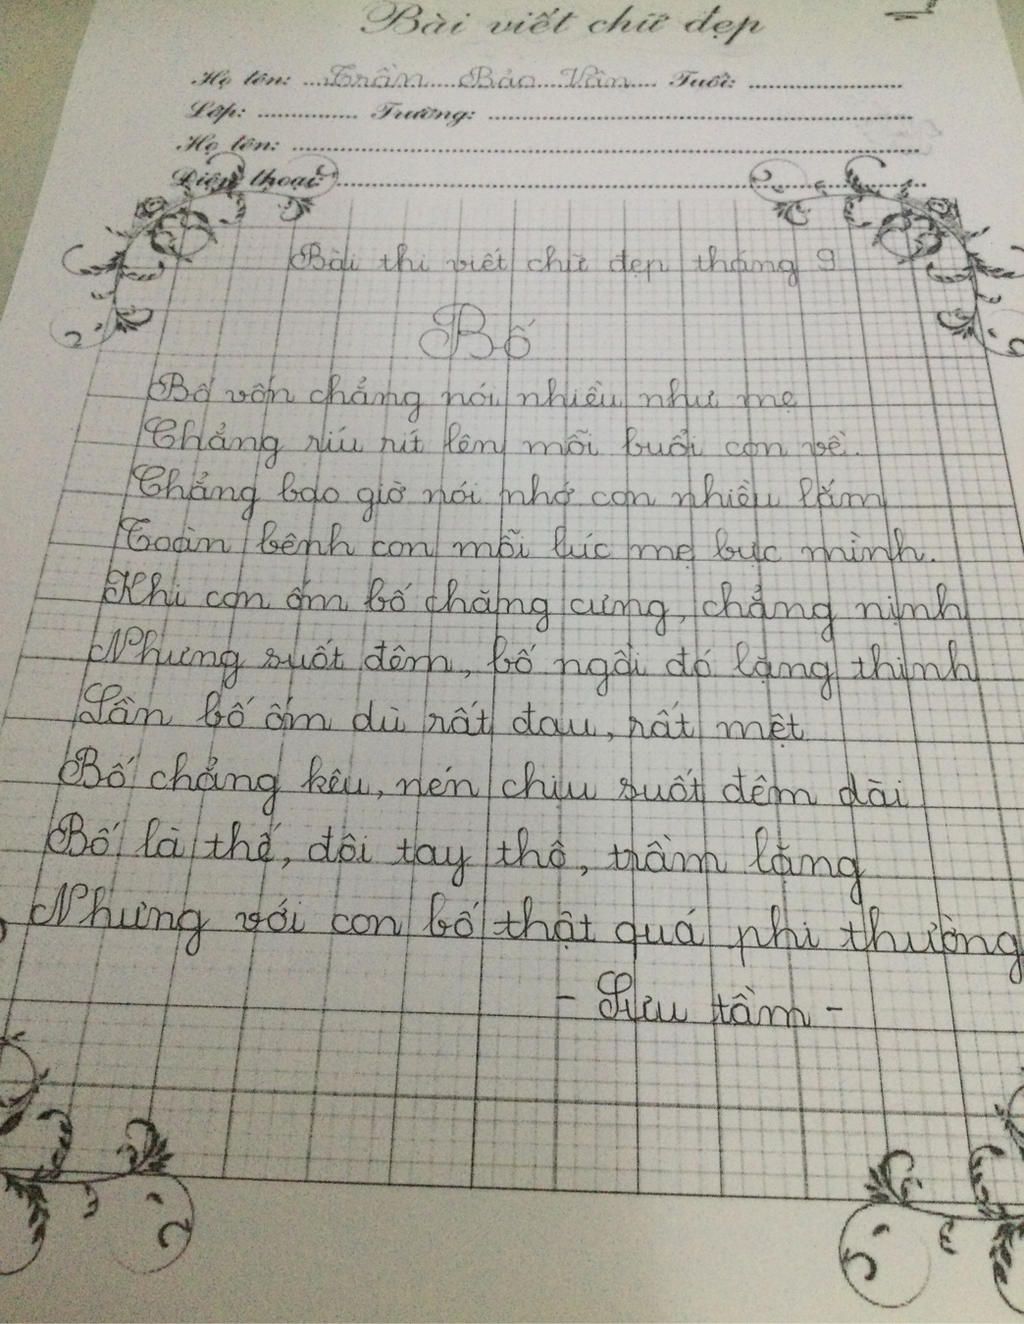 Bài viết chữ đẹp
Họ tên: Trần Bảo Vân Tuổi:
Lớp: Trường:
Họ tên:
Điện thoại:
Bài thi viết chữ đẹp tháng 9
Bố
Bố vốn chẳng nói nhiều như mẹ
Chẳng ríu rít lên mỗi buổi con về.
Chẳng bao giờ nói nhớ con nhiều lắm
Toàn bênh con mỗi lúc mẹ bực mình.
Khi con ốm bố chăng cưng, chẳng nịnh
Nhưng suốt đêm, bố ngồi đó lặng thinh
Lần bố ốm dù rất đau, rất mệt
Bố chẳng kêu, nén chịu suốt đêm dài
Bố là thế, đôi tay thô, trầm lặng
Nhưng với con bố thật quá phi thường
- Sưu tầm -